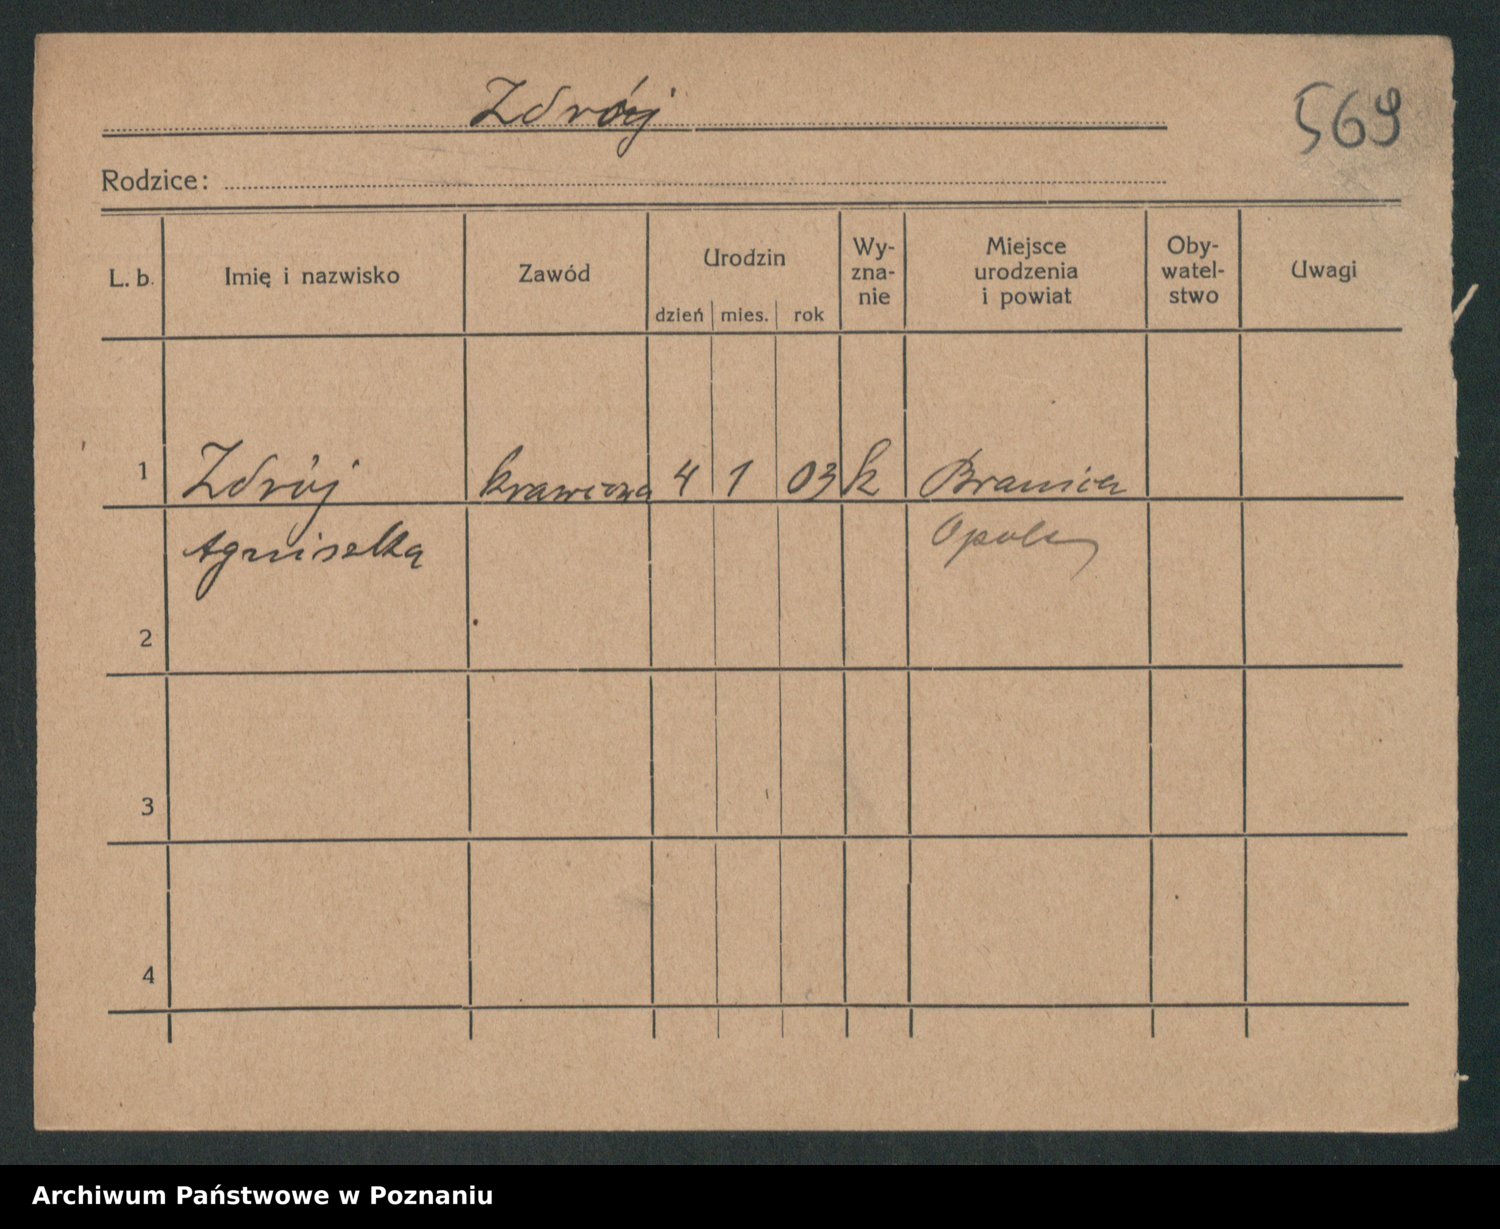 Zdrój
569
Rodzice:
L. b. Imię i nazwisko Zawód Urodzin dzień mies. rok Wy-zna-nie Miejsce urodzenia i powiat Oby-watel-stwo Uwagi
1 Zdrój krawcowa 4 1 03 k
Agniszka Opole
2
3
4
Archiwum Państwowe w Poznaniu